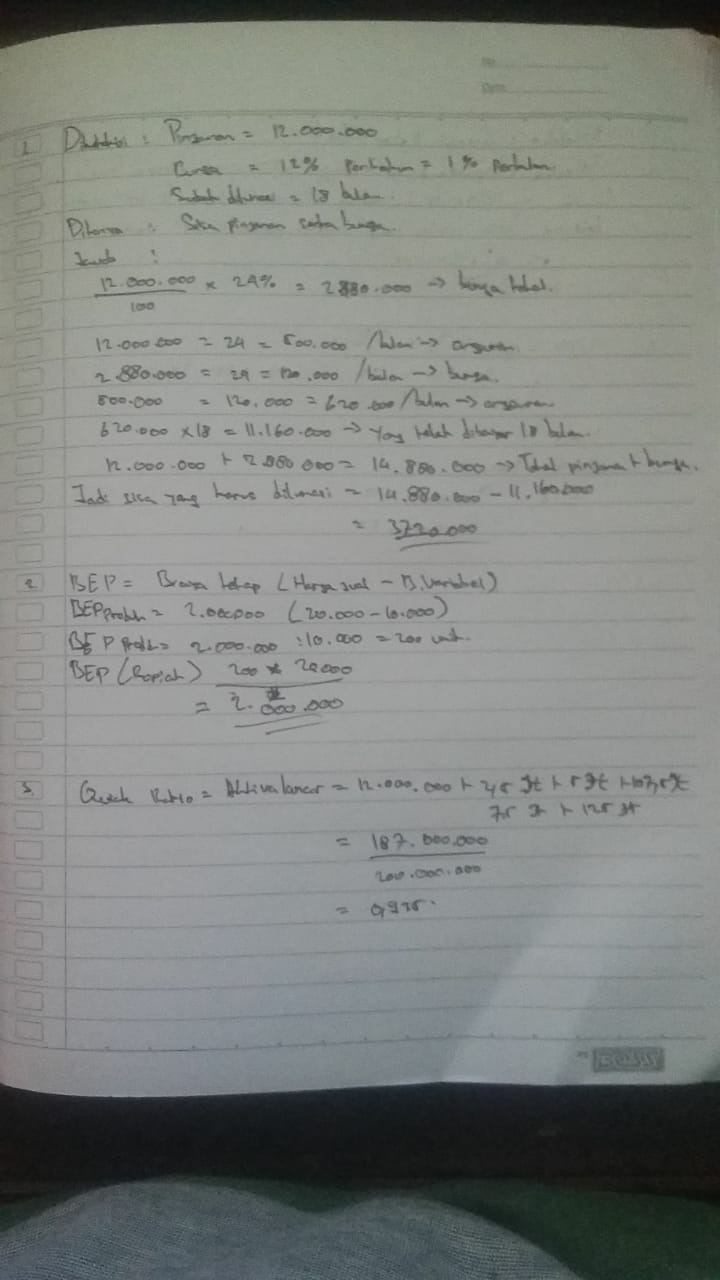 1. Diketahui : Pinjaman = 12.000.000
Bunga = 12% Pertahun = 1% Perbulan
Sudah dilunasi = 18 bulan.
Ditanya : Sisa pinjaman serta bunga.
Jawab :
12.000.000 x 24% = 2.880.000 -> bunga total.
100
12.000.000 = 24 = 500.000 /bulan -> angsuran.
2.880.000 = 24 = 120.000 /bulan -> bunga.
500.000 = 120.000 = 620.000 /bulan -> angsuran
620.000 x 18 = 11.160.000 -> yang telah dibayar 18 bulan.
12.000.000 + 2.880.000 = 14.880.000 -> Total pinjaman + bunga.
Jadi sisa yang harus dilunasi = 14.880.000 - 11.160.000
= 3720.000
2. BEP = Biaya tetap (Harga jual - B.Variabel)
BEP Produk = 2.000.000 (20.000 - 10.000)
BEP Produk = 2.000.000 : 10.000 = 200 unit.
BEP (Rupiah) 200 x 20000
= 2.000.000
3. Quick Ratio = Aktiva lancar = 12.000.000 +
75 jt + 125 jt
= 187.000.000
200.000.000
= 0,935.